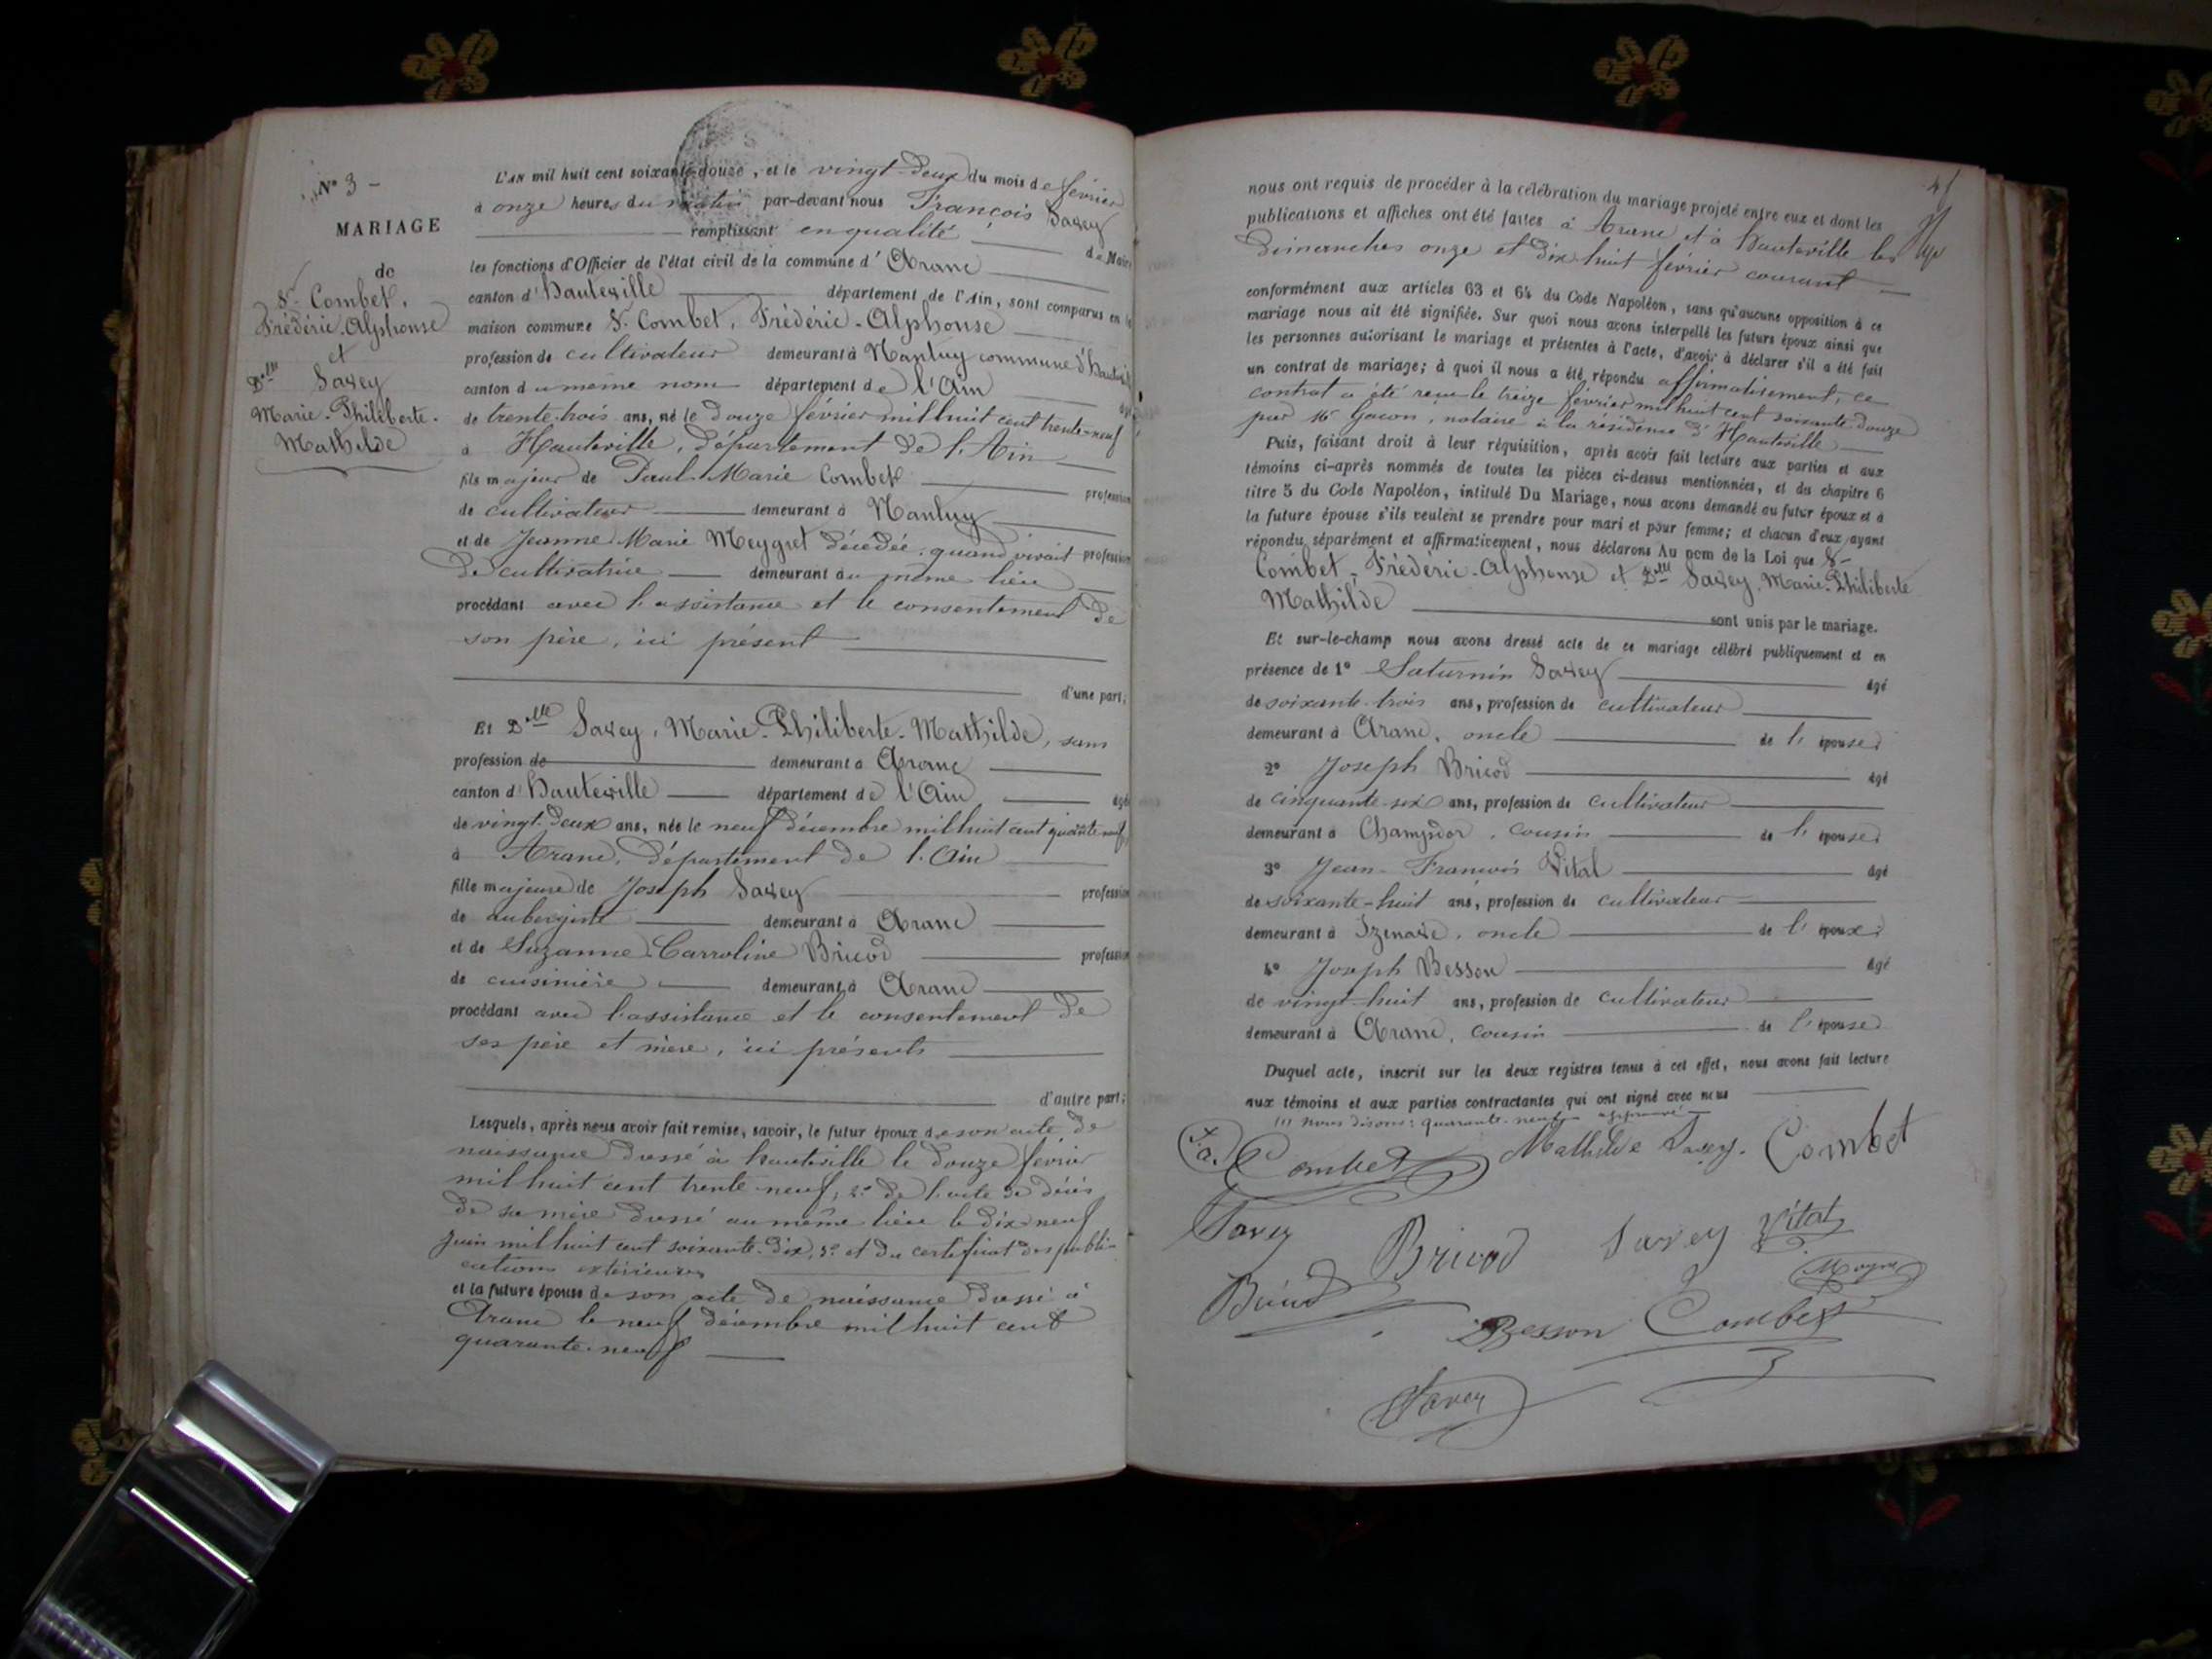 N° 3 -
MARIAGE
de
Sr Combet,
Frédéric-Alphonse
et
Delle Savey
Marie-Philiberte-
Mathilde
L'AN mil huit cent soixante-douze, et le vingt-deux du mois de février
à onze heures du matin par-devant nous François Savey
remplissant en qualité de Maire
les fonctions d'Officier de l'état civil de la commune d'Aranc
canton d'Hauteville département de l'Ain, sont comparus en la
maison commune Sr Combet, Frédéric-Alphonse
profession de cultivateur demeurant à Nantuy commune d'Hauteville
canton du même nom département de l'Ain âgé
de trente-trois ans, né le douze février mil huit cent trente-neuf
à Hauteville, département de l'Ain
fils majeur de Paul-Marie Combet profession
de cultivateur demeurant à Nantuy
et de Jeanne Marie Meygret décédée, quand vivait profession
de cultivatrice demeurant au même lieu
procédant avec l'assistance et le consentement de
son père, ici présent
d'une part;
Et Delle Savey, Marie-Philiberte-Mathilde, sans
profession de demeurant à Aranc
canton d'Hauteville département de l'Ain âgé
de vingt-deux ans, née le neuf décembre mil huit cent quarante neuf
à Aranc, département de l'Ain
fille majeure de Joseph Savey profession
de aubergiste demeurant à Aranc
et de Suzanne Carroline Bricod profession
de cuisinière demeurant à Aranc
procédant avec l'assistance et le consentement de
ses père et mère, ici présents
d'autre part;
Lesquels, après nous avoir fait remise, savoir, le futur époux de son acte de
naissance dressé à Hauteville le douze février
mil huit cent trente-neuf, 2° de l'acte de décès
de sa mère dressé au même lieu le dix-neuf
juin mil huit cent soixante-dix, 3° et du certificat des publi-
cations extérieures
et la future épouse de son acte de naissance dressé à
Aranc le neuf décembre mil huit cent
quarante-neuf
nous ont requis de procéder à la célébration du mariage projeté entre eux et dont les
publications et affiches ont été faites à Aranc et à Hauteville les
Dimanches onze et dix huit février courant
conformément aux articles 63 et 64 du Code Napoléon, sans qu'aucune opposition à ce
mariage nous ait été signifiée. Sur quoi nous avons interpellé les futurs époux ainsi que
les personnes autorisant le mariage et présentes à l'acte, d'avoir à déclarer s'il a été fait
un contrat de mariage; à quoi il nous a été répondu affirmativement, ce
contrat a été reçu le treize février mil huit cent soixante-douze
par Me Gacon, notaire à la résidence d'Hauteville
Puis, faisant droit à leur réquisition, après avoir fait lecture aux parties et aux
témoins ci-après nommés de toutes les pièces ci-dessus mentionnées, et du chapitre 6
titre 5 du Code Napoléon, intitulé Du Mariage, nous avons demandé au futur époux et à
la future épouse s'ils veulent se prendre pour mari et pour femme; et chacun d'eux ayant
répondu séparément et affirmativement, nous déclarons Au nom de la Loi que Sr
Combet, Frédéric-Alphonse et Delle Savey, Marie-Philiberte
Mathilde
sont unis par le mariage.
Et sur-le-champ nous avons dressé acte de ce mariage célébré publiquement et en
présence de 1° Saturnin Savey âgé
de soixante-trois ans, profession de cultivateur
demeurant à Aranc, oncle de l'épouse;
2° Joseph Bricod âgé
de cinquante-six ans, profession de cultivateur
demeurant à Champdor, cousin de l'épouse;
3° Jean-François Vital âgé
de soixante-huit ans, profession de cultivateur
demeurant à Izenave, oncle de l'époux;
4° Joseph Besson âgé
de vingt-huit ans, profession de cultivateur
demeurant à Aranc, cousin de l'épouse
Duquel acte, inscrit sur les deux registres tenus à cet effet, nous avons fait lecture
aux témoins et aux parties contractantes qui ont signé avec nous
(1) nous disons: quarante-neuf approuvé
Combet Mathilde Savey. Combet
Savey Bricod Savey Vital
Bricod Besson Combet
Savey